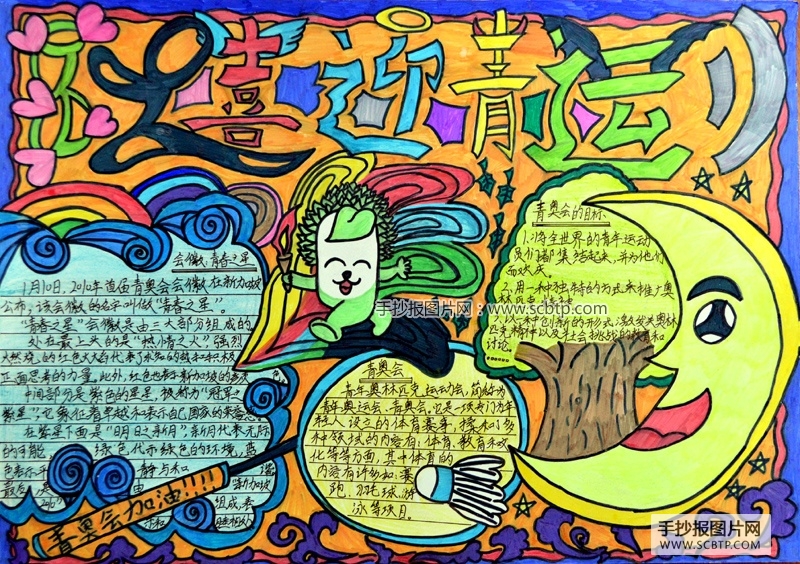 喜迎青运
会徽:青春之星
1月10日,2010年首届青奥会会徽在新加坡
公布,该会徽的名字叫做“青春之星”。
“青春之星”会徽是由三大部分组成的
处在最上头的是“燃情之火”强烈
正面思考的力量,此外,红色也表示新加坡的
中间部分是紫色的星星,被称为“冠军之
繁星”,它象征着卓越和表示自己国家的荣誉感
在繁星下面是“明日之新月”新月代表无际
的可能,绿色代表绿色的环境,蓝
静与和
最后
组成,表
青奥会加油!!!!
青奥会
青年奥林匹克运动会,简称为
青年奥运会、青奥会,它是一项专门为年
轻人设立的体育赛事,揉和了多
种领域的内容有:体育、教育和文
化等等方面,其中体育的
内容有许多如:赛
跑、羽毛球、游
泳等项目。
青奥会的目标
1.将全世界的青年运动
员们都集结起来,并为他们
而欢庆。
2.用一种独特的方式来推广奥
林匹克精神
以一种创新的形式,激发关奥林
匹克精神以及社会挑战的教育和
讨论
手抄报图片网:www.scbtp.com
手抄报图片网
WWW.SCBTP.COM
手抄报图片网
WWW.SCBTP.COM